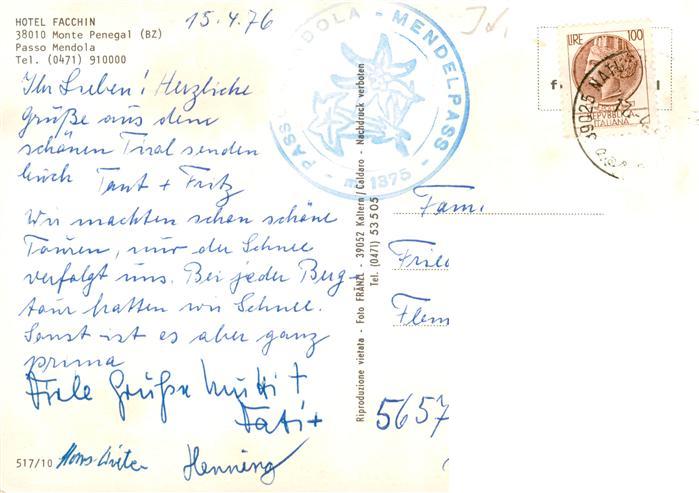 HOTEL FACCHIN
38010 Monte Penegal (BZ)
Passo Mendola
Tel. (0471) 910000
15.4.76
Ihr Lieben! Herzliche
Grüße aus dem
schönen Tirol senden
Euch Tant + Fritz
Wir machten schon schöne
Touren, nur der Schnee
verfolgt uns. Bei jeder Berg-
tour hatten wir Schnee.
Sonst ist es aber ganz
prima
Viele Grüße Mutti +
Vati +
Henning
517/10
PASS
DOLA - MENDELPASS - PASS
m 1375
Riproduzione vietata - Foto FRÄNZL - 39052 Kaltern/Caldaro - Nachdruck verboten
Tel. (0471) 53505
LIRE 100
REPVBBLICA
ITALIANA
39025 NAT
Fam.
Fried
Flem
5657